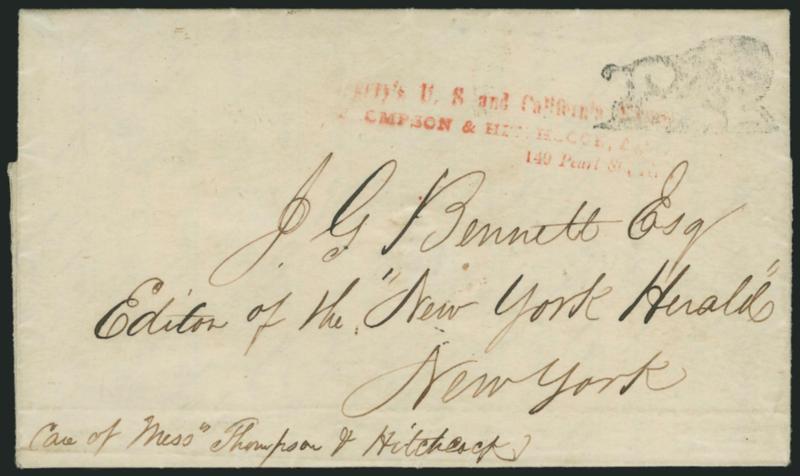 U. S and California
OMPSON & HITCHCOCK,
149 Pearl St.,
J G Bennett Esq
Editor of the "New York Herald"
New York
Care of Mess" Thompson & Hitchcock